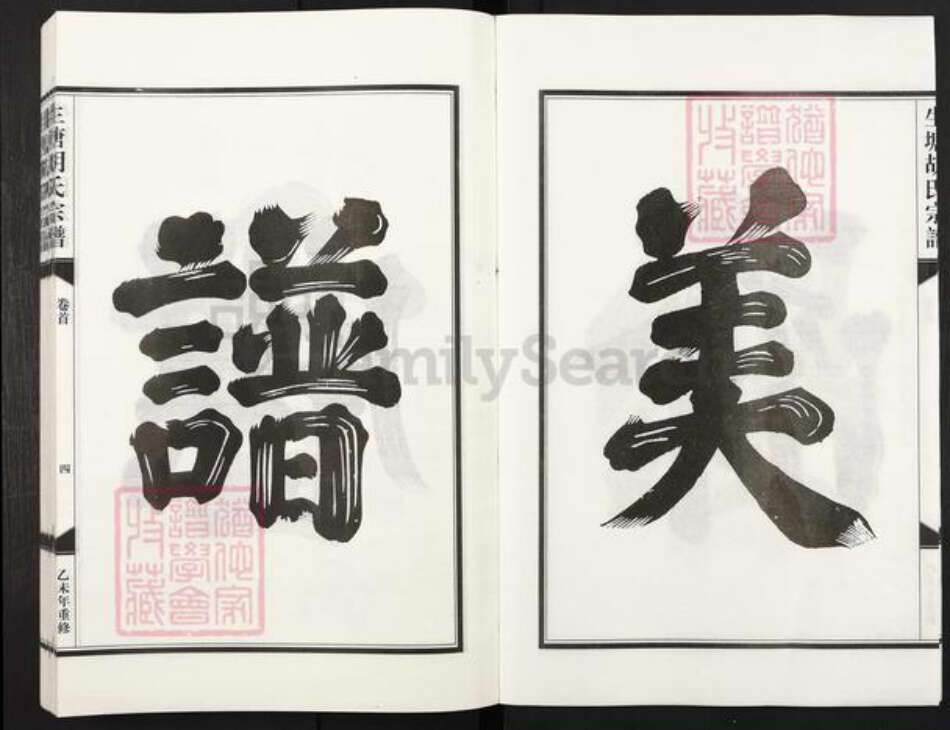 美
譜
生塘胡氏宗譜
生塘胡氏宗譜
卷首
四
乙未年重修
猶他家譜學會收藏
猶他家譜學會收藏
FamilySearch